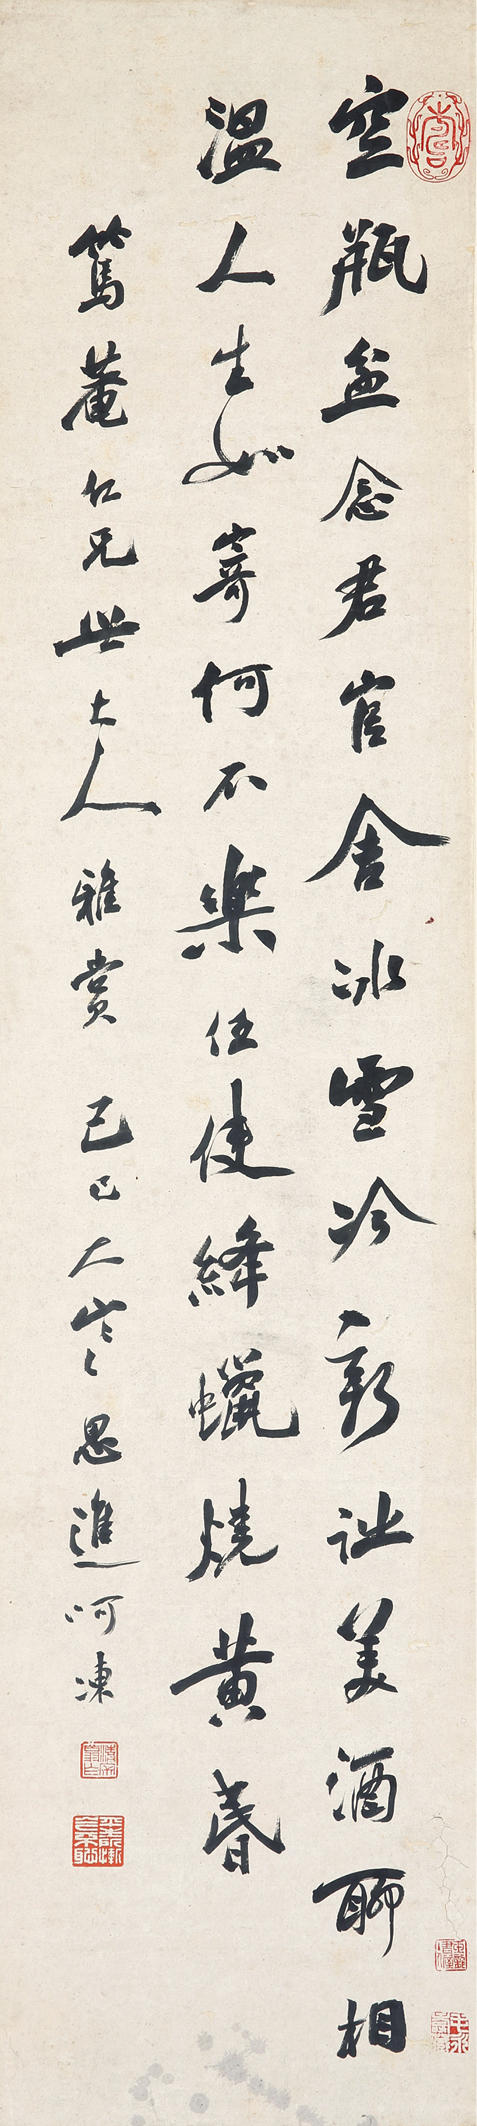 空瓶盆念君官舍冰雪冷新詩美酒聊相
溫人生如寄何不樂任使絳蠟燒黃昏
篤菴仁兄世大人雅賞 己巳大寒進呵凍